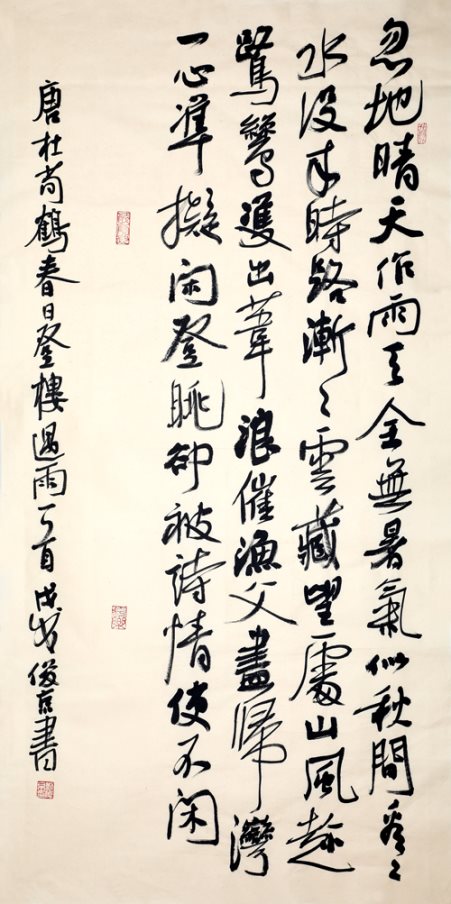 忽地晴天作雨天全無暑氣似秋間看〻
水没来時路漸〻雲藏望處山風趁
鷺鷥雙出葦浪催漁父盡歸灣
一心準擬闲登眺卻被詩情使不闲
唐杜荀鶴春日登樓遇雨一首戊戌俊京書